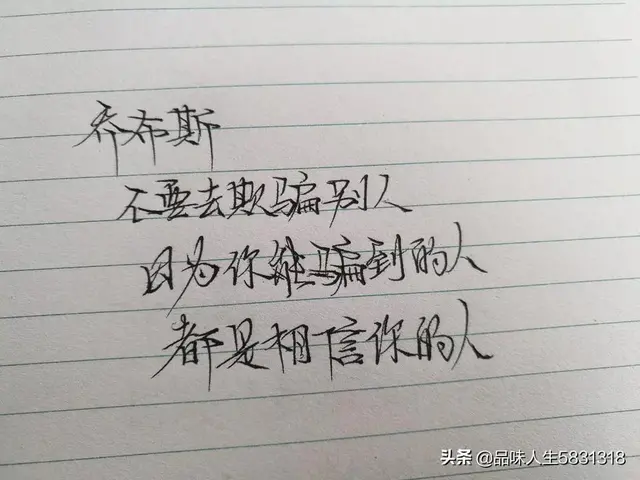 乔布斯
不要去欺骗别人
因为你能骗到的人
都是相信你的人
头条 @品味人生5831318